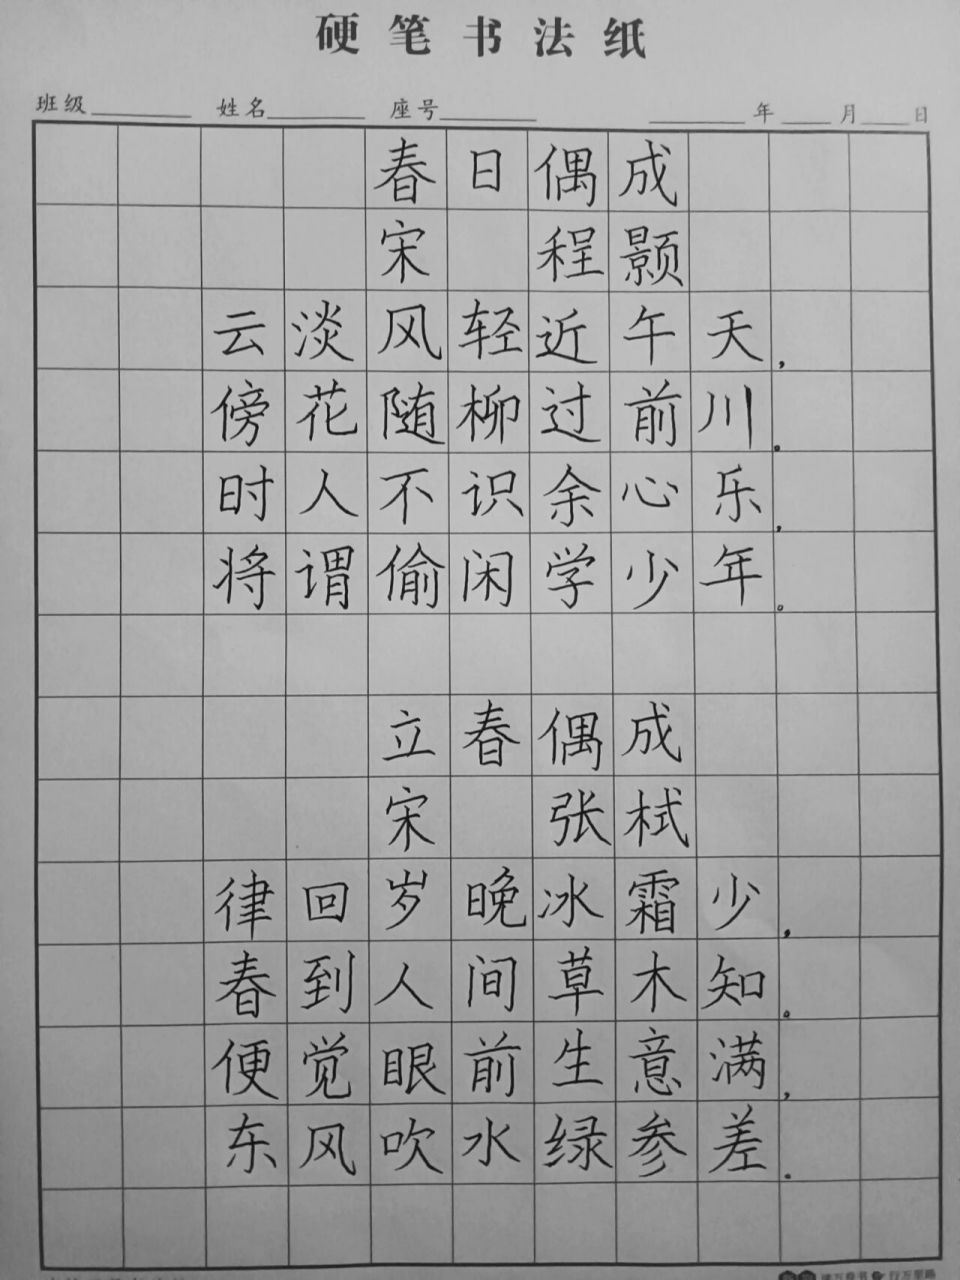 硬笔书法纸
班级 姓名 座号 年 月 日
春日偶成
宋 程颢
云淡风轻近午天，
傍花随柳过前川。
时人不识余心乐，
将谓偷闲学少年。
立春偶成
宋 张栻
律回岁晚冰霜少，
春到人间草木知。
便觉眼前生意满，
东风吹水绿参差。